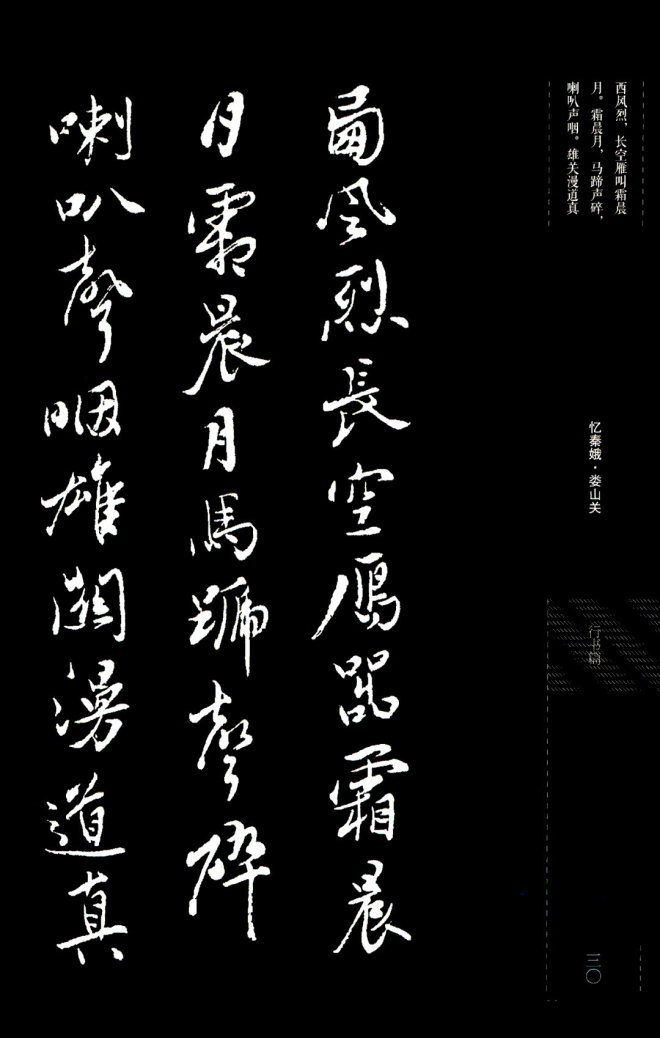 西风烈，长空雁叫霜晨
月。霜晨月，马蹄声碎，
喇叭声咽。雄关漫道真
忆秦娥·娄山关
行书篇
三〇
西风烈長空雁叫霜晨
月霜晨月馬蹄聲碎
喇叭聲咽雄關漫道真